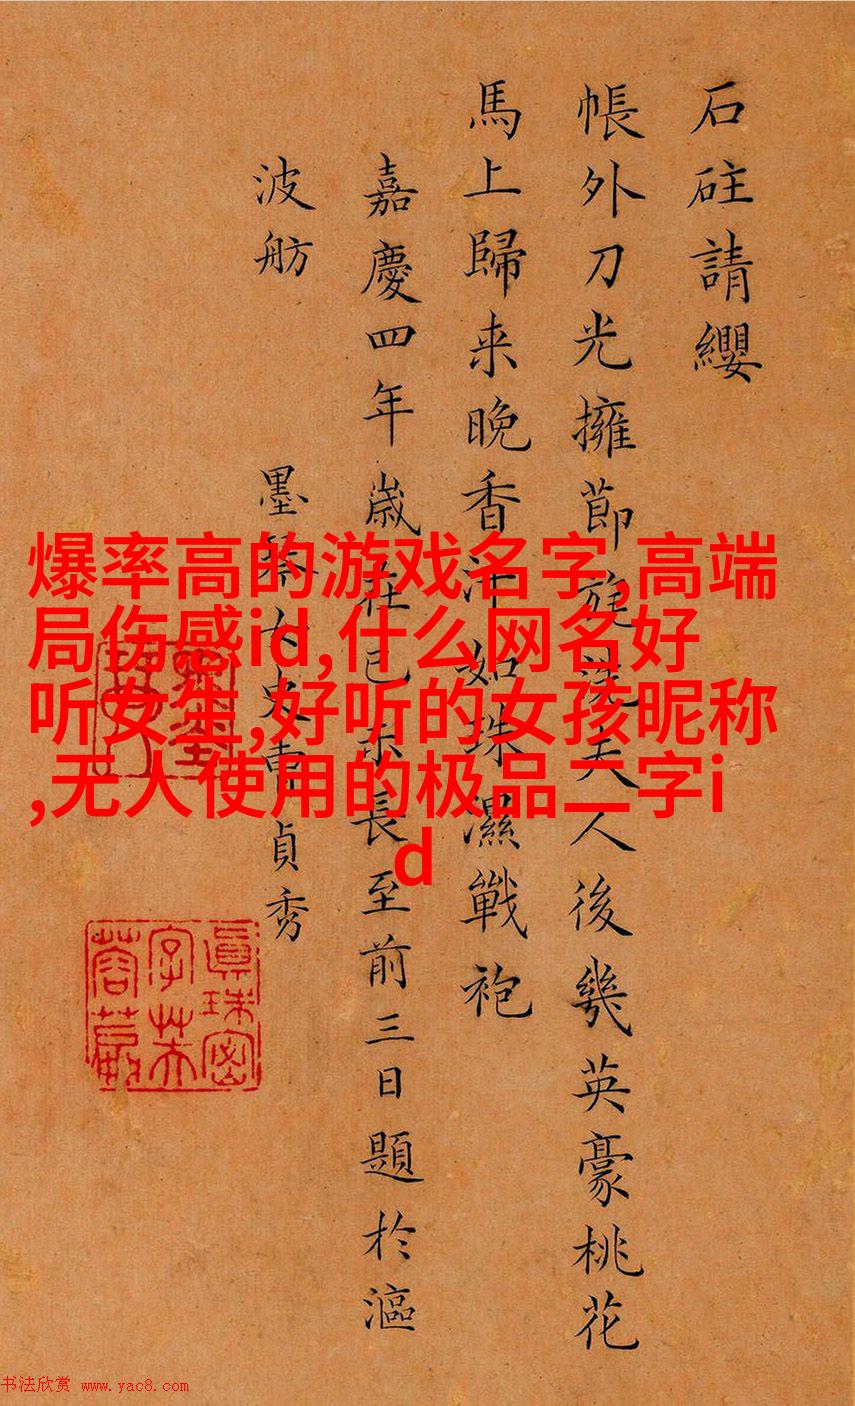 石砫請纓
帳外刀光擁節旄洗夫人後幾英豪桃花
馬上歸来晚香汗如珠濕戰袍
嘉慶四年歲在己未長至前三日題於漚
波舫 墨琴女史曹貞秀
爆率高的游戏名字,高端
局伤感id,什么网名好
听女生,好听的女孩昵称
,无人使用的极品二字i
d
眞珠密
书法欣赏 www.yac8.com